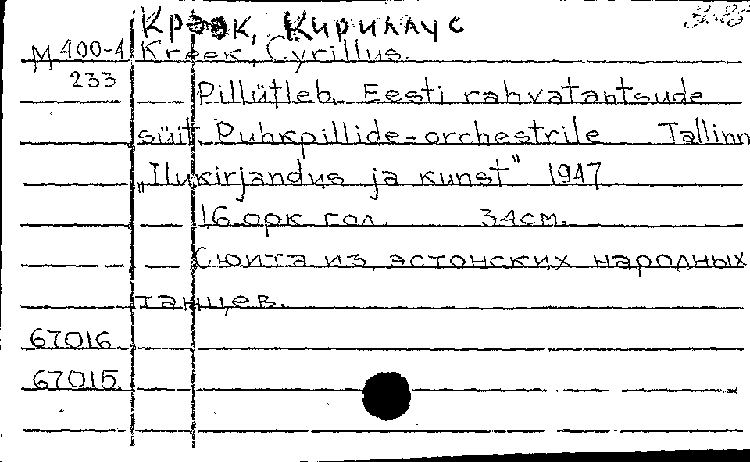 Кроок, Кириллус
М 400-4 Kreek, Cyrillus.
233 Pillütleb. Eesti rahvatantsude
süit. Puhkpillide-orchestrile Tallinn
„Ilukirjandus ja kunst" 1947
16 орк гол. 34 см.
Сюита из эстонских народных
танцев.
67016
67015